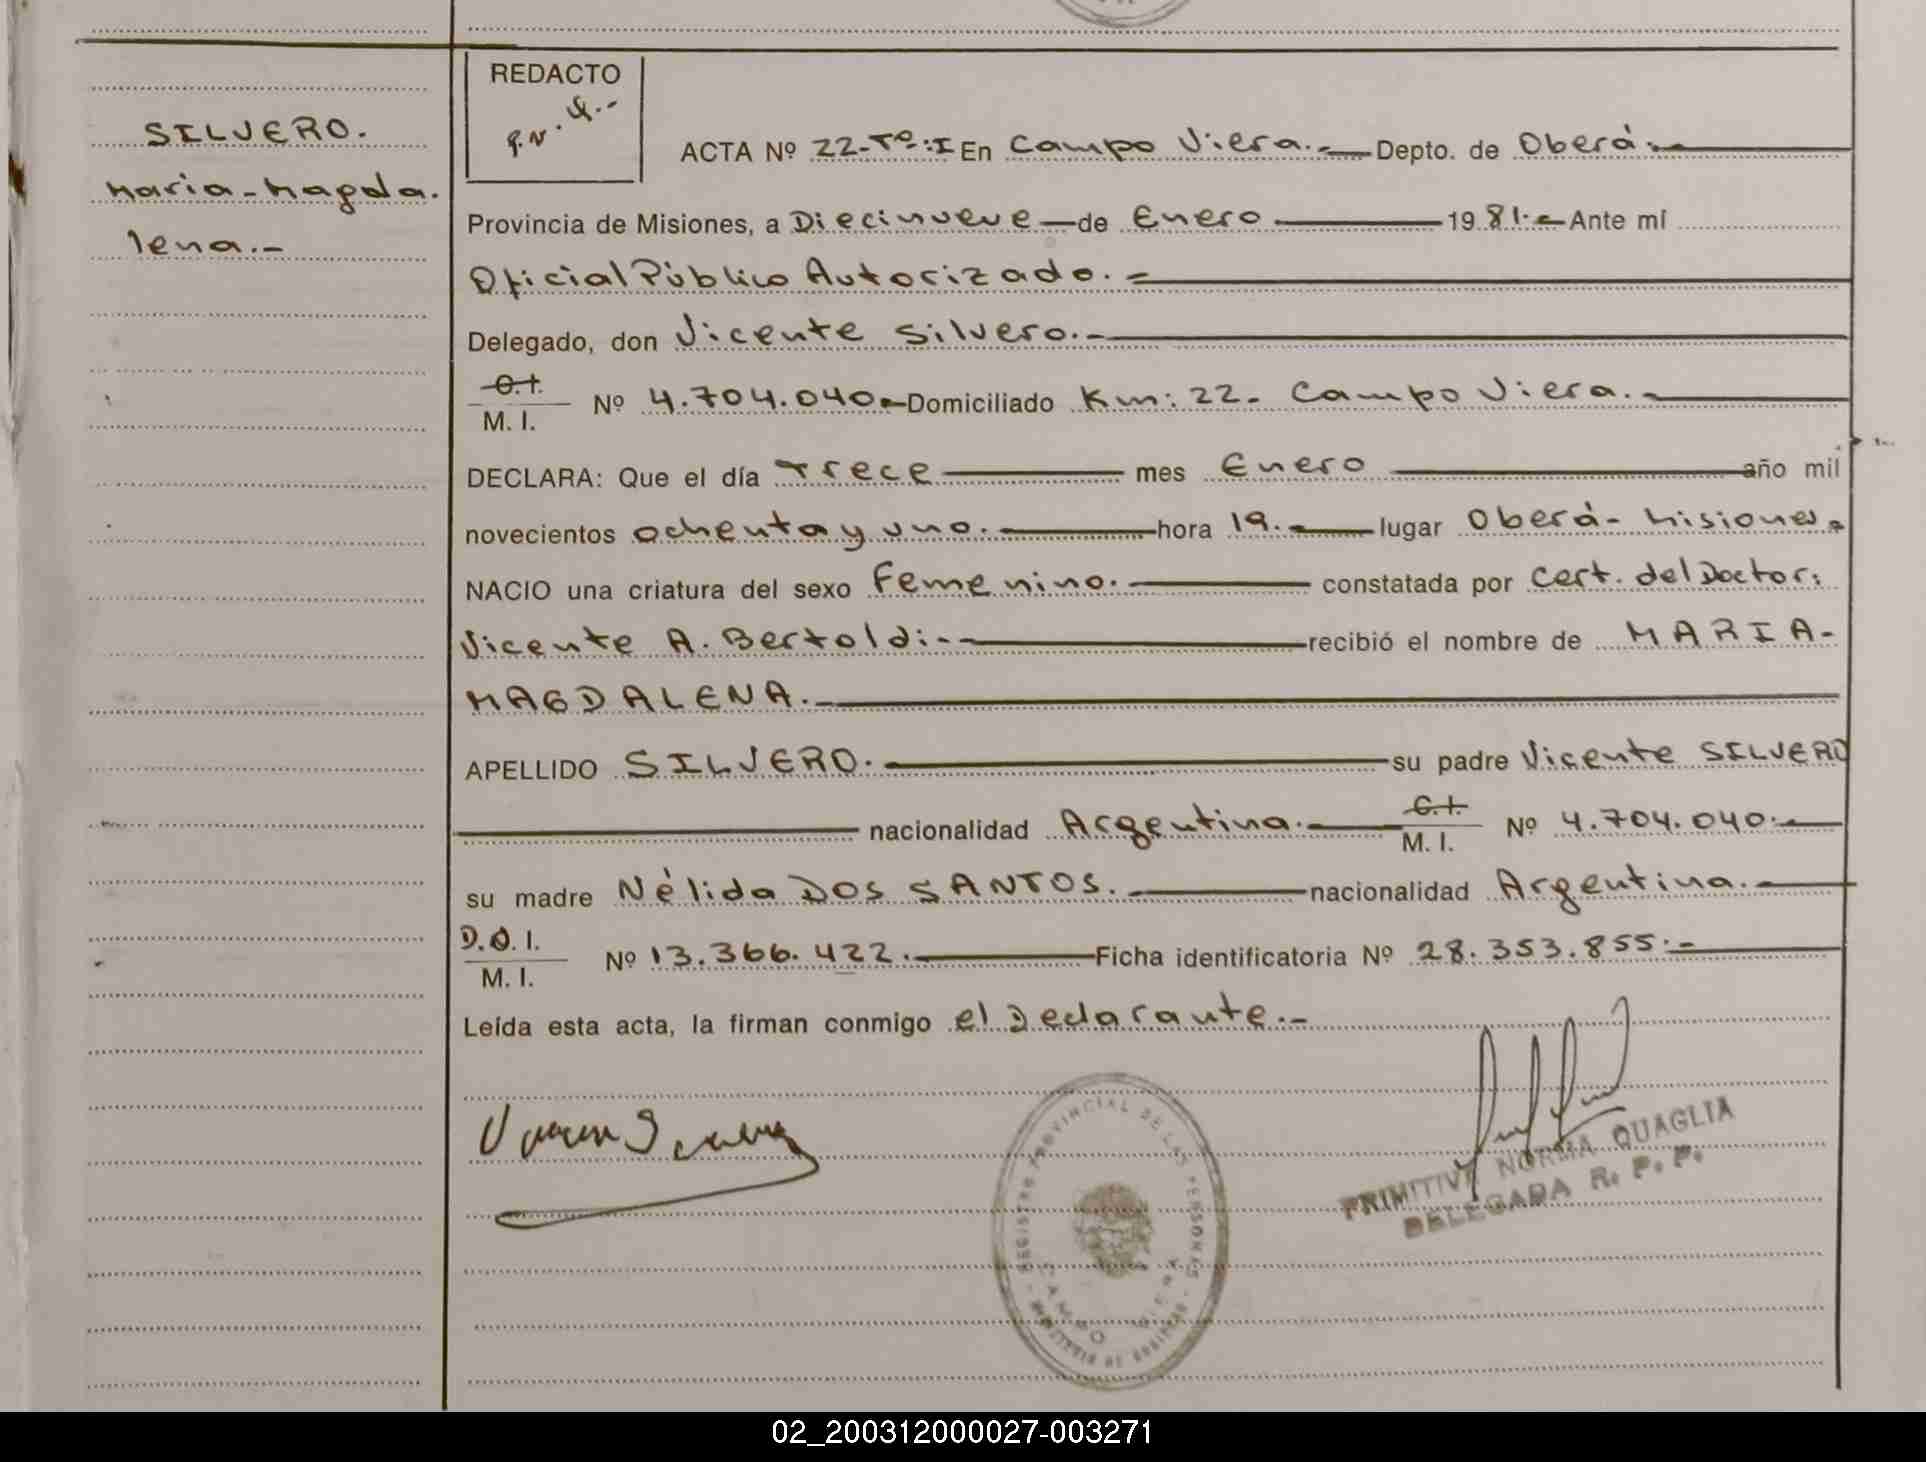 SILVERO.
Maria-Magda.
lena.-
REDACTO
P.N. 4.-
ACTA Nº 22-Tº:I En Campo Viera.- Depto. de Oberá.-
Provincia de Misiones, a Diecinueve de Enero 1981.- Ante mí
Oficial Público Autorizado.-
Delegado, don Vicente Silvero.-
C.I.
M. I. Nº 4.704.040.- Domiciliado Km: 22- Campo Viera.-
DECLARA: Que el día trece mes Enero año mil
novecientos ochenta y uno.- hora 19.- lugar Oberá- Misiones.
NACIO una criatura del sexo Femenino.- constatada por Cert. del Doctor:
Vicente A. Bertoldi-- recibió el nombre de MARIA-
MAGDALENA.-
APELLIDO SILVERO.- su padre Vicente SILVERO
nacionalidad Argentina.- C.I. M. I. Nº 4.704.040.-
su madre Nélida DOS SANTOS.- nacionalidad Argentina.-
D.O.I.
M. I. Nº 13.366.422.- Ficha identificatoria Nº 28.353.855.-
Leída esta acta, la firman conmigo el Declarante.-
REGISTRO PROVINCIAL DE LAS PERSONAS
CAMPO VIERA
MINISTERIO DE GOBIERNO
PRIMITIVA NORMA QUAGLIA
DELEGADA R. P. P.
02_200312000027-003271